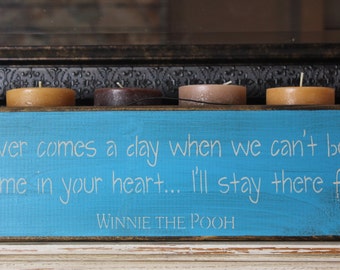 ver comes a day when we can't be
me in your heart... I'll stay there f
WINNIE THE POOH